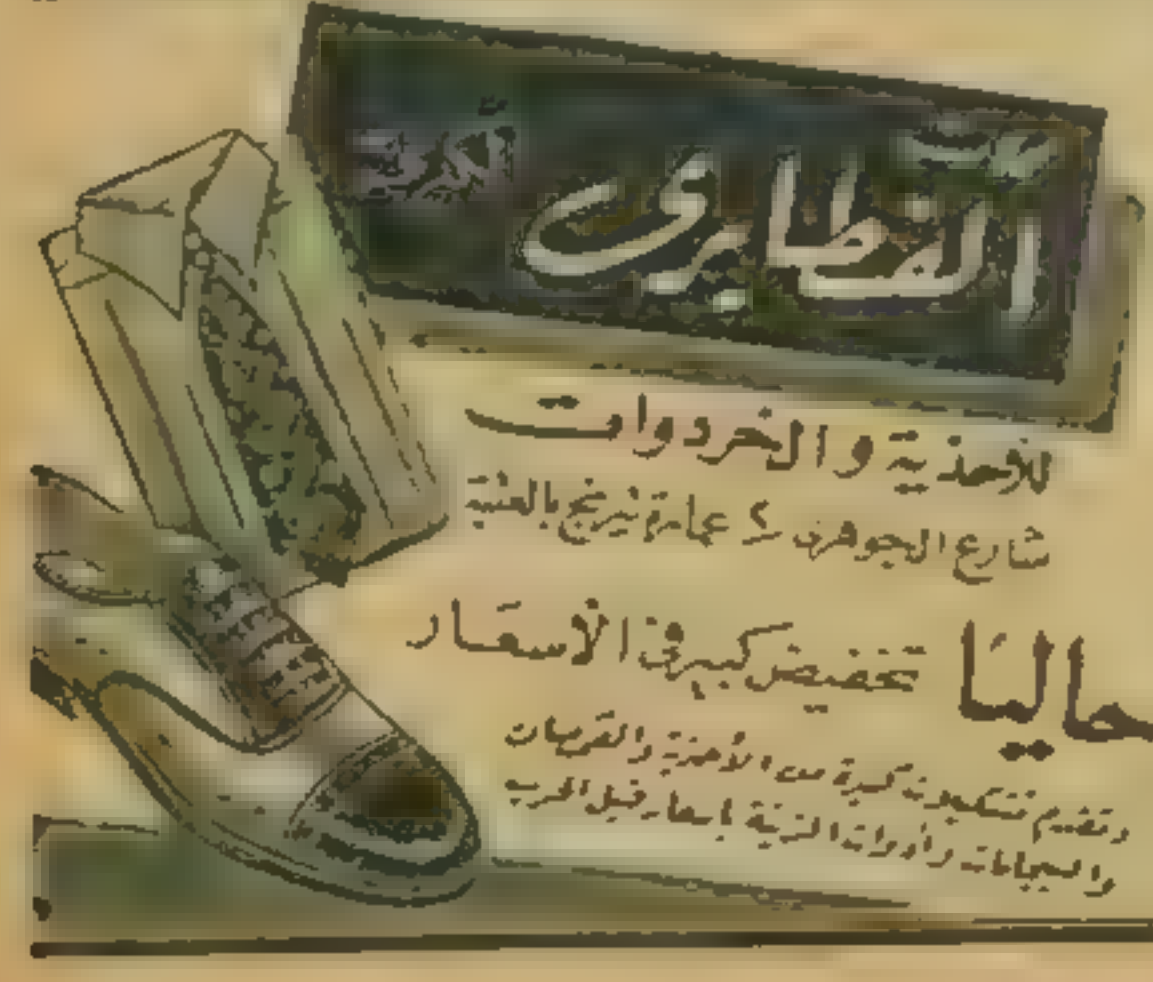 الفطايرى
للأحذية والخردوات
شارع الجوهرى عمارة تيرنج بالعتبة
حاليا تخفيض كبير فى الأسعار
وتقدم تشكيلات كبيرة من الأحذية والقمصان
والبيجامات وأدوات الزينة بأسعار قبل الحرب